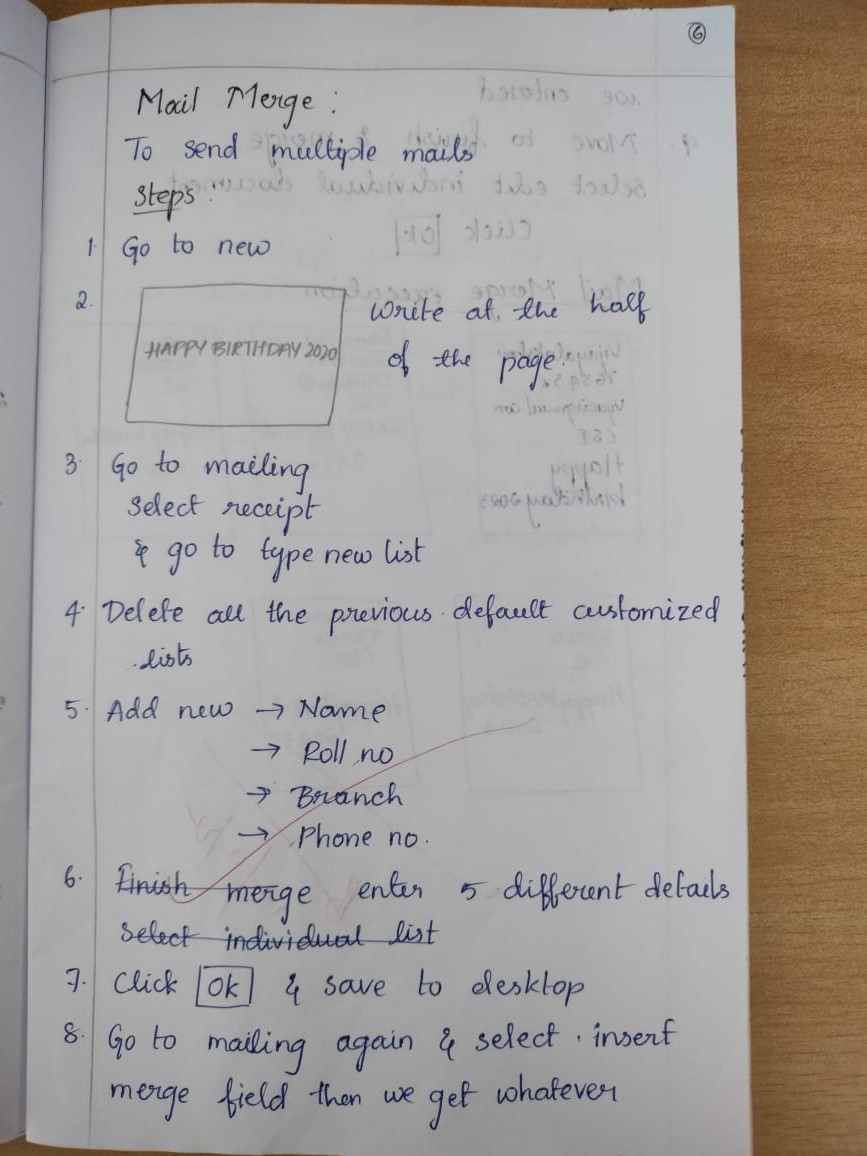 6
Mail Merge :
To send multiple mails
Steps :
1. Go to new
2. HAPPY BIRTHDAY 2020
Write at the half
of the page.
3. Go to mailing
select receipt
& go to type new list
4. Delete all the previous default customized
lists
5. Add new → Name
→ Roll no
→ Branch
→ Phone no.
6. Finish merge enter 5 different details
Select individual list
7. Click OK & save to desktop
8. Go to mailing again & select insert
merge field then we get whatever